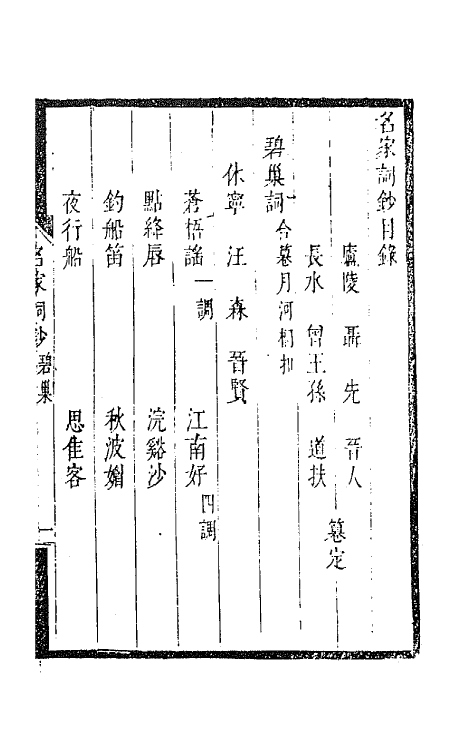 名家詞鈔目錄
廬陵 聶先 晉人
長水 曾王孫 道扶
纂定
碧巢詞 合纂月河桐扣
休寧 汪森 晉賢
蒼梧謠一調 江南好四調
點絳唇 浣谿沙
釣船笛 秋波媚
夜行船 思佳客
名家詞鈔 碧巢 一